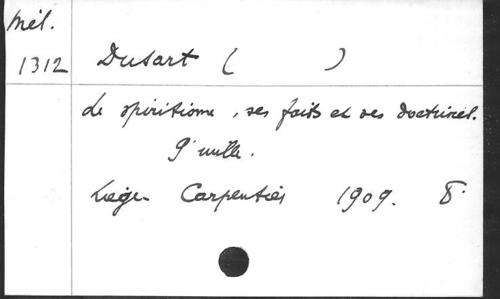 Mél.
1312 Dusart ( )
Le spiritisme, ses faits et ses doctrines.
9e mille.
Liège Carpentier 1909. 8°